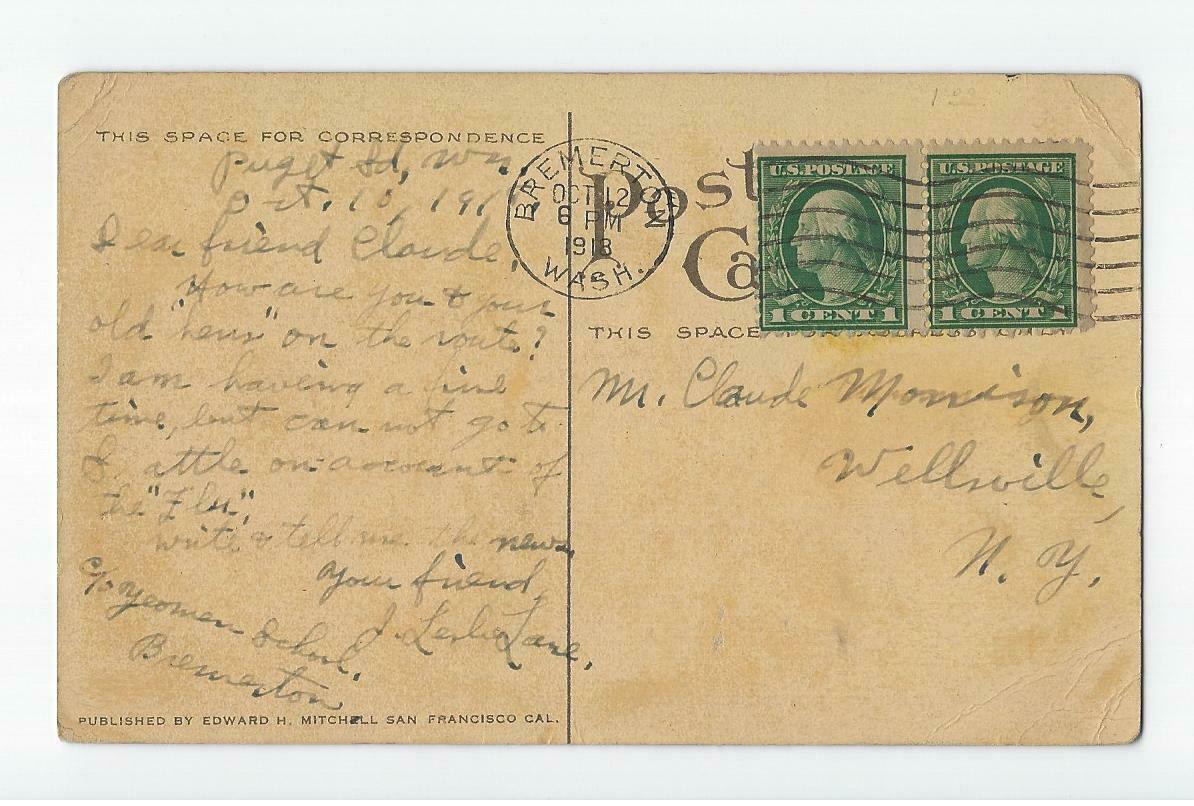 1 00
THIS SPACE FOR CORRESPONDENCE
Puget Sd, Wn.
Oct. 10, 191
Dear friend Claude,
How are you & your
old "hens" on the route?
I am having a fine
time, but can not go to
Seattle on account of
the "Flu".
Write & tell me the news.
Your friend,
J. Leslie Lane,
c/o Yeomen School,
Bremerton
PUBLISHED BY EDWARD H. MITCHELL SAN FRANCISCO CAL.
BREMERTON
OCT 12
6 PM
1918
WASH.
Post
Ca
U.S. POSTAGE
1 CENT 1
U.S. POSTAGE
1 CENT 1
THIS SPACE FOR ADDRESS ONLY
Mr. Claude Morrison,
Wellsville,
N. Y.